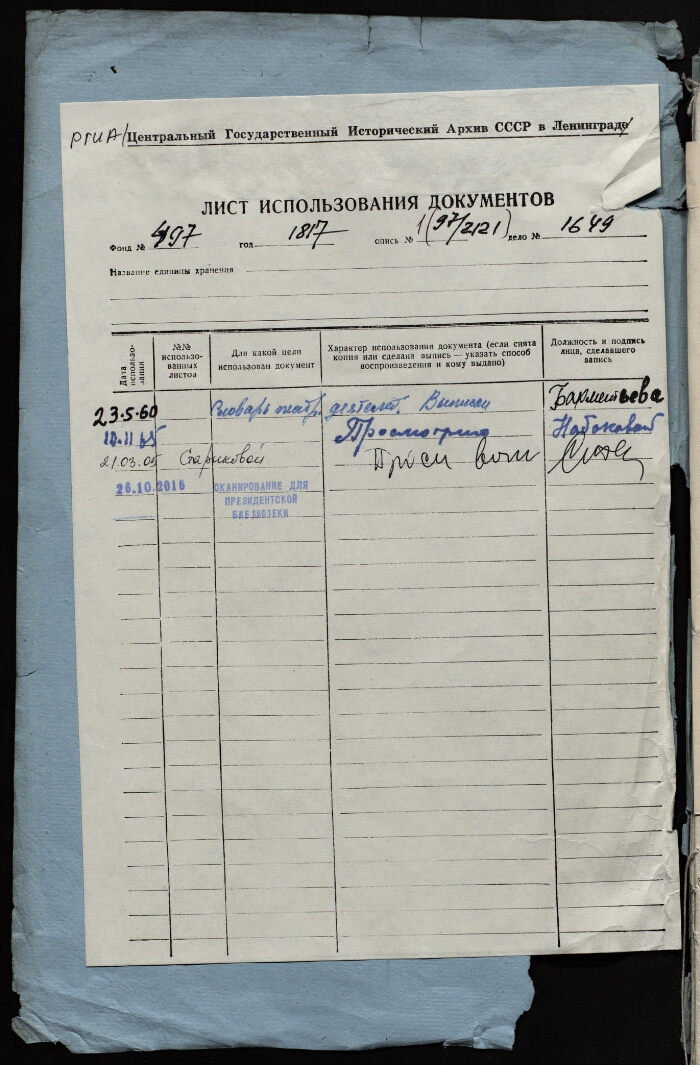 РГИА/Центральный Государственный Исторический Архив СССР в Ленинграде
ЛИСТ ИСПОЛЬЗОВАНИЯ ДОКУМЕНТОВ
Фонд № 497 год 1817 опись № 1 (97/2121) дело № 1649
Название единицы хранения
Дата использо-вания
№№ использо-ванных листов
Для какой цели использован документ
Характер использования документа (если снята копия или сделана выпись — указать способ воспроизведения и кому выдано)
Должность и подпись лица, сделавшего запись
23-5-60 Словарь театр. деятелей. Выписки
11 65 Просмотрено Набоковой
21.03.05 Стариковой
26.10.2016 СКАНИРОВАНИЕ ДЛЯ
ПРЕЗИДЕНТСКОЙ
БИБЛИОТЕКИ